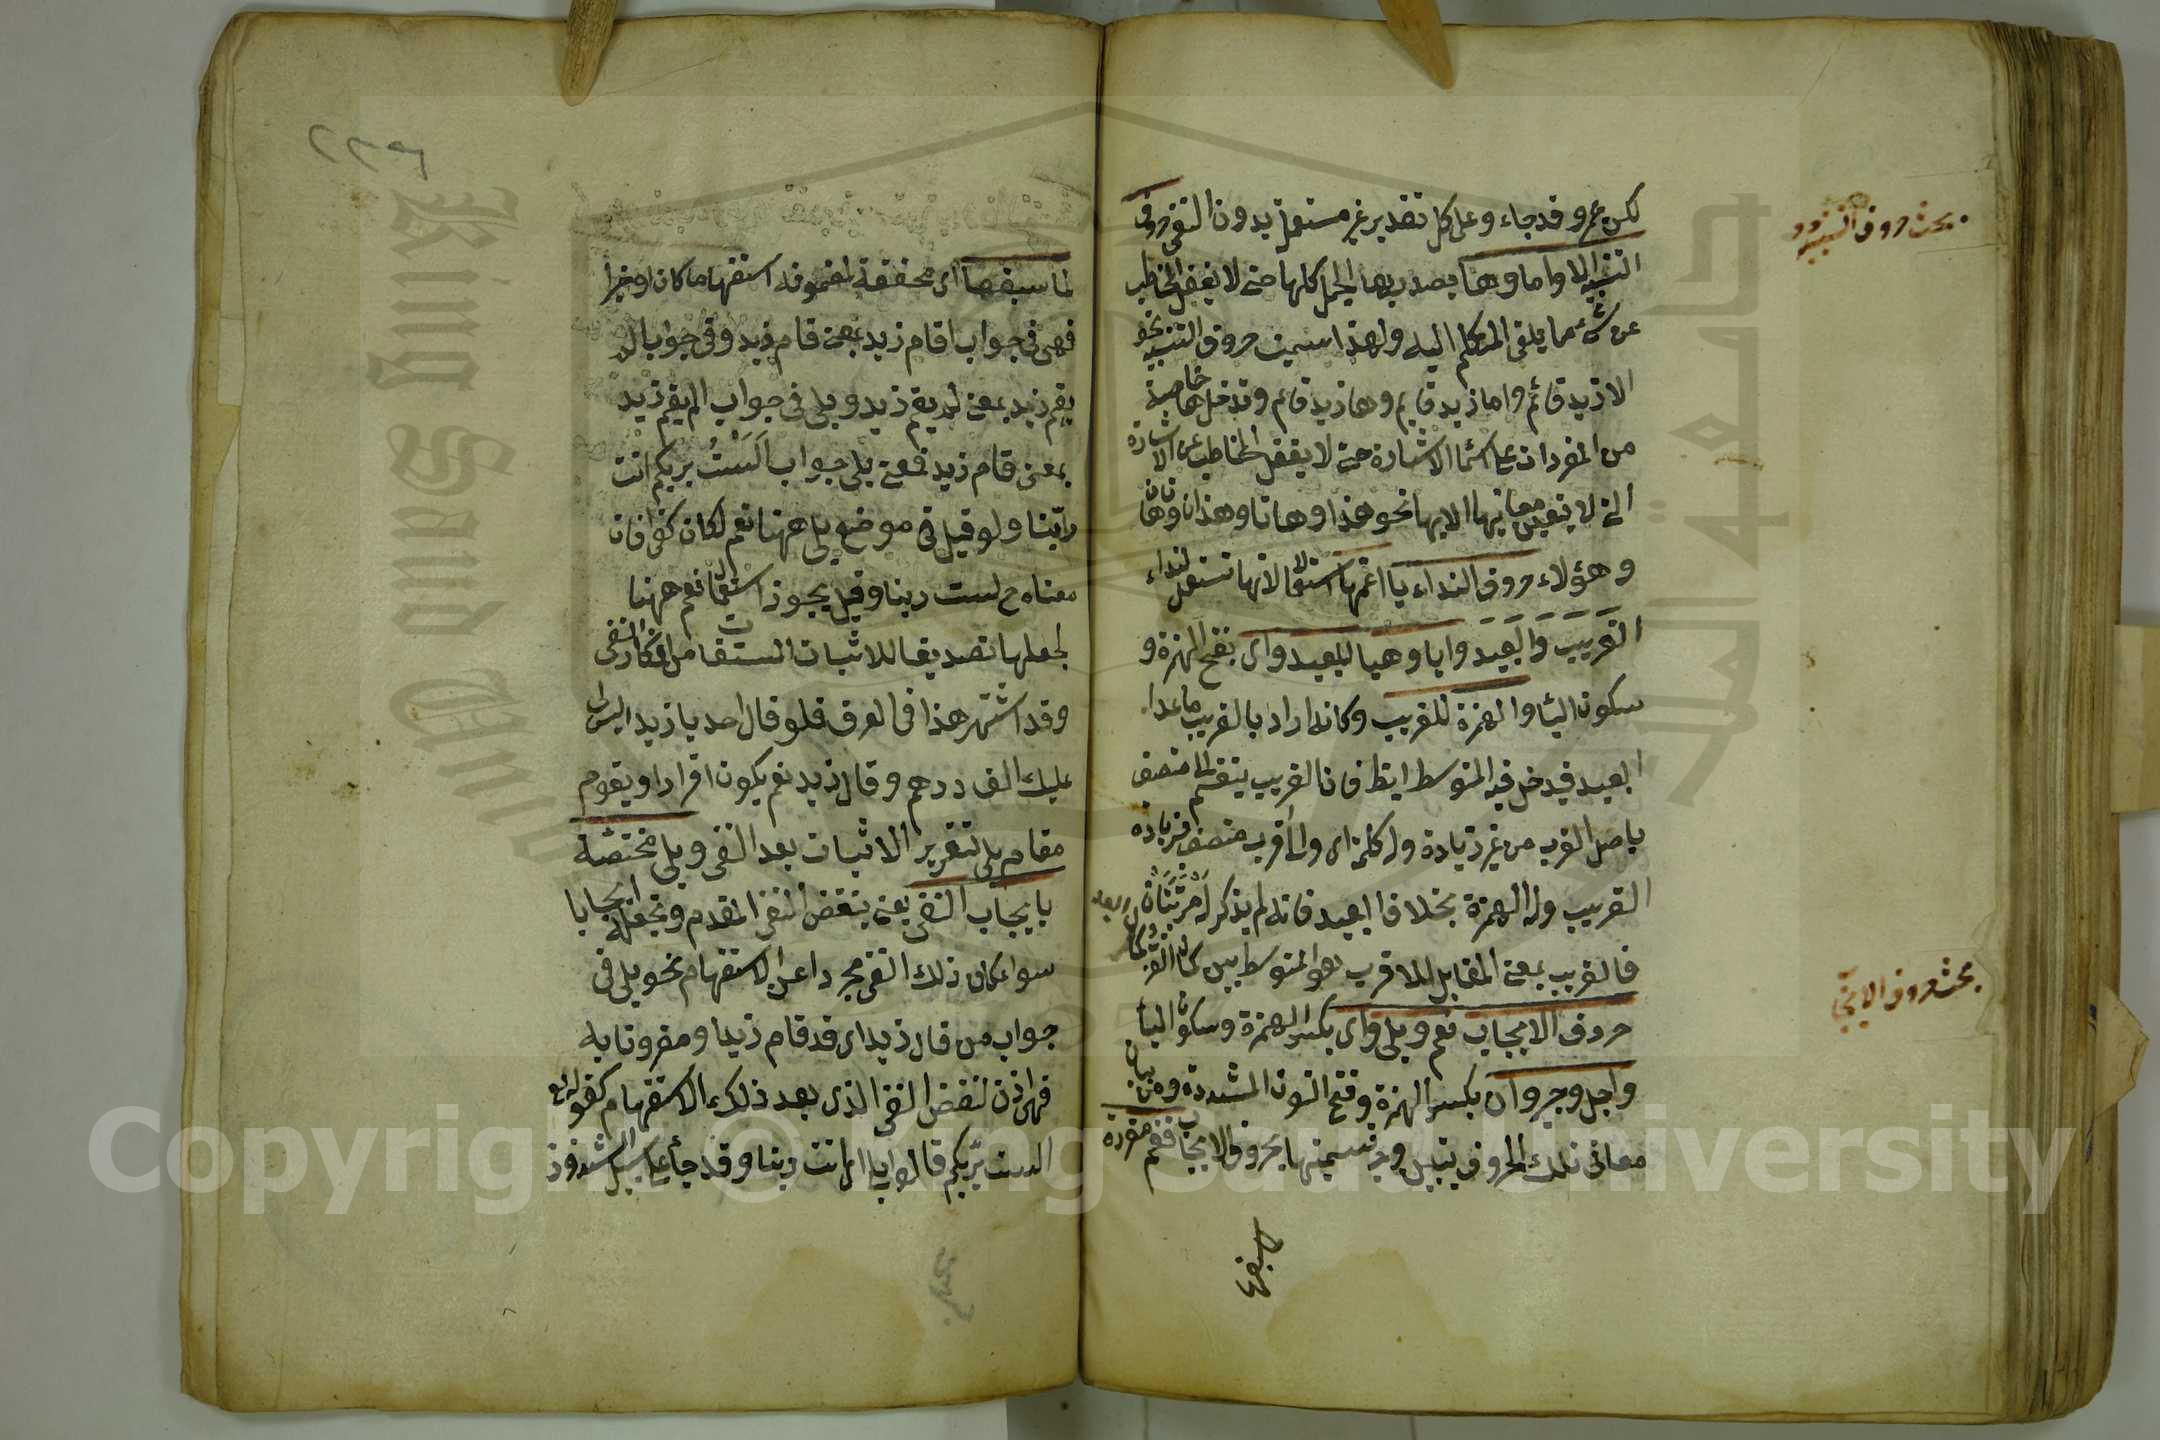 بحث حروف التنبيه
لكن عمرو قد جاء وعلى كل تقدير غير مستعمل بدون النفي حروف
التنبيه الا واما وها يصدر بها الجمل كلها حتى لا يغفل المخاطب
عن شئ مما يلقى المتكلم اليه ولهذا سميت حروف التنبيه نحو
الا زيد قائم واما زيد قايم وها زيد قائم وتدخل ها خاصة
من المفردات على اسماء الاشارة حتى لا يغفل المخاطب عن الاشارة
التي لا يتعين معانيها الا بها نحو هذا وهاتا وهذان وهاتان
وهؤلاء حروف النداء يا اعمها استعمالا لانها تستعمل لنداء
القريب والبعيد وايا وهيا للبعيد واى بفتح الهمزة و
سكون الياء والهمزة للقريب وكانه اراد بالقريب ماعدا
البعيد فيدخل فيه المتوسط ايضا فان القريب ينقسم الى متصف
باصل القرب من غير زيادة وله كلمة اى والى اقرب متصف بزيادة
القريب وله الهمزة بخلاف البعيد فانه لم يذكر له مرتبتان
فالقريب بمعنى المقابل للاقرب هو المتوسط بين كمال القرب
بحث حروف الايجاب
حروف الايجاب نعم وبلى واى بكسر الهمزة وسكون الياء
واجل وجير وان بكسر الهمزة وفتح النون المشددة ومن بيان
معانى تلك الحروف يتبين وجه تسميتها بحروف الايجاب فنعم مقررة
لما سبقها
٢٢٩
لما سبقها اى محققة لمضمونه استفهاما كان او خبرا
فهى فى جواب اقام زيد بمعنى قام زيد وفى جواب الم
يقم زيد بمعنى لم يقم زيد وبلى فى جواب الم يقم زيد
بمعنى قام زيد فمعنى بلى جواب الست بربكم انت
ربنا ولو قيل فى موضع بلى ههنا نعم لكان كفرا فان
معناه ح لست ربنا وقيل يجوز استعمال نعم ههنا
لجعلها تصديقا للاثبات المستفاد من انكار النفى
وقد اشتهر هذا فى العرف فلو قال احد يا زيد اليس لى
عليك الف درهم وقال زيد نعم يكون اقرارا ويقوم
مقام بلى لتقرير الاثبات بعد النفى وبلى مختصة
بايجاب النفى يعنى ينقض النفى المقدم وتجعله ايجابا
سواء كان ذلك النفى مجردا عن الاستفهام نحو بلى فى
جواب من قال زيد اى قد قام زيد او مقرونا به
فهى اذن لنقض النفى الذى بعد ذلك الاستفهام كقوله تع
الست بربكم قالوا بلى اى انت ربنا وقد جاء على سبيل الشذوذ
Copyright © King Saud University